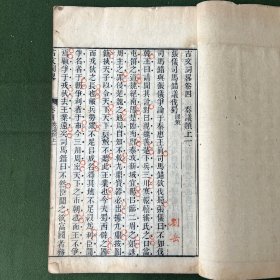 古文詞略卷四 奏議類上一
張儀司馬錯議伐蜀 國策
司馬錯與張儀爭論于秦惠王前司馬錯欲伐蜀張儀曰不如伐
韓王曰請聞其說對曰親魏善楚下兵三川塞轘轅緱氏之口當
屯留之道魏絕南陽楚臨南鄭秦攻新城宜陽以臨二周之郊誅
周主之罪侵楚魏之地周自知不救九鼎寶器必出據九鼎按圖
籍挾天子以令天下天下莫敢不聽此王業也今夫蜀西辟之國
而戎狄之長也敝兵勞眾不足以成名得其地不足以為利臣聞
爭名者于朝爭利者于市今三川周室天下之市朝也而王不爭
焉顧爭于戎狄去王業遠矣司馬錯曰不然臣聞之欲富國者務
古文詞略